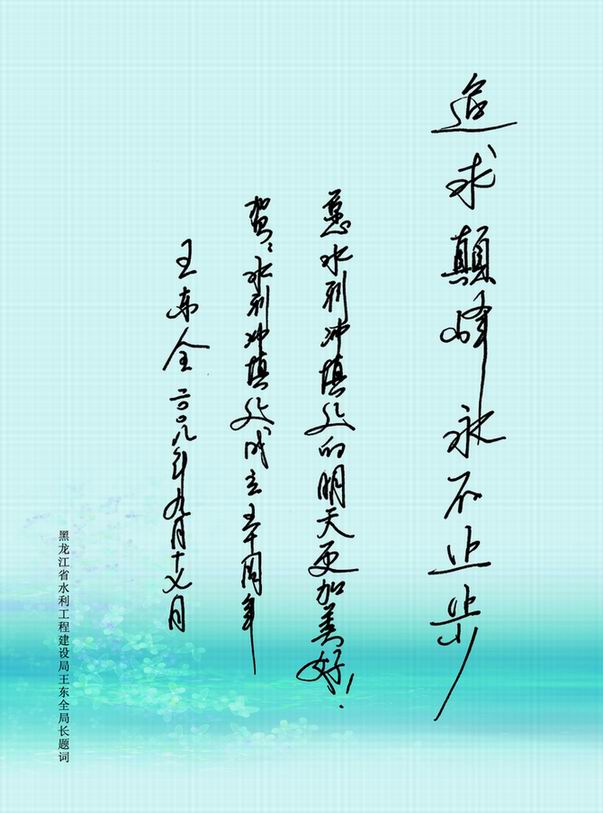 追求颠峰永不止步
愿水利冲填处的明天更加美好！
贺：水利冲填处成立五十周年
王东全 二〇〇八年九月十七日
黑龙江省水利工程建设局王东全局长题词